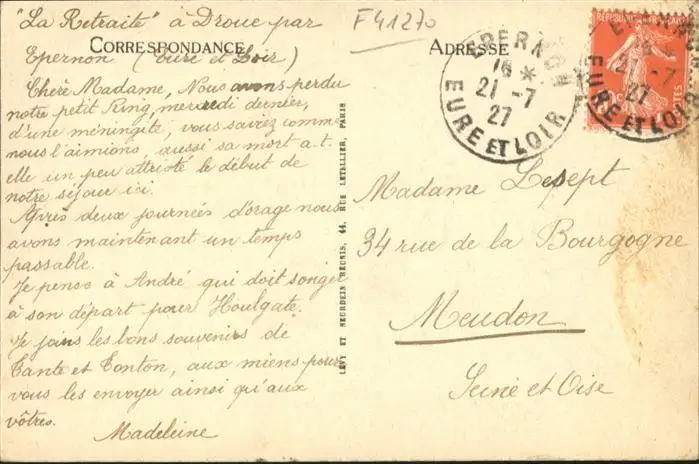 "La Retraite" à Droue par
Epernon (Eure et Loir)
F41270
CORRESPONDANCE
ADRESSE
Chère Madame, Nous avons perdu
notre petit King, mercredi dernier,
d'une méningite, vous savez comme
nous l'aimions, aussi sa mort a-t-
elle un peu attristé le début de
notre séjour ici.
Après deux journées d'orage nous
avons maintenant un temps
passable.
Je pense à André qui doit songer
à son départ pour Houlgate.
Je joins les bons souvenirs de
Tante et Tonton, aux miens pour
vous les envoyer ainsi qu'aux
vôtres.
Madeleine
LÉVY ET NEURDEIN RÉUNIS, 44, RUE LETELLIER, PARIS
EPERNON
16 *
21 - 7
27
EURE ET LOIR
21 - 7
27
EURE ET LOIR
Madame Lesept
34 rue de la Bourgogne
Meudon
Seine et Oise